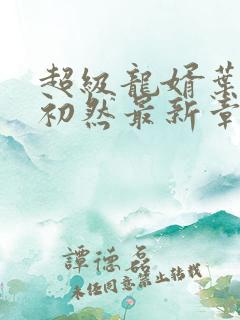 超級龍婿葉
初然最新章
譚德磊
未任同意禁止轉載